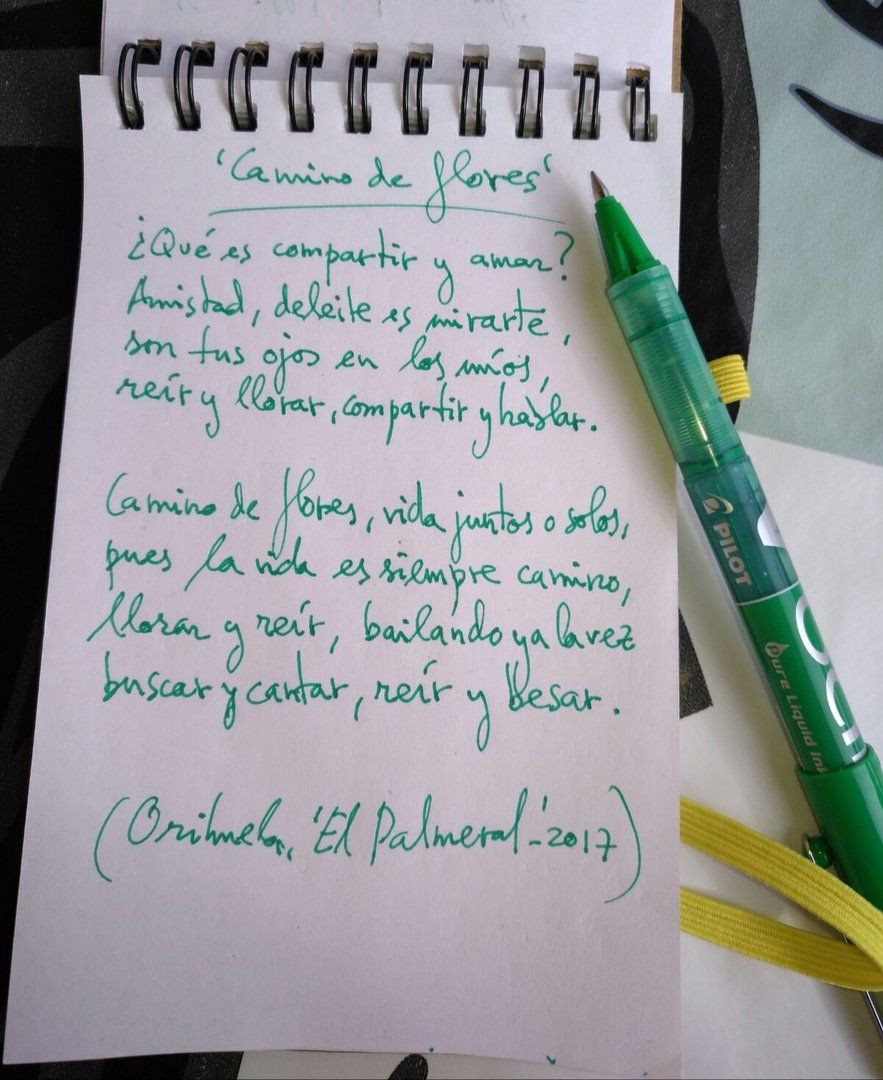 'Camino de flores'
¿Qué es compartir y amar?
Amistad, deleite es mirarte,
son tus ojos en los míos,
reír y llorar, compartir y hablar.
Camino de flores, vida juntos o solos,
pues la vida es siempre camino,
llorar y reír, bailando y a la vez
buscar y cantar, reír y besar.
(Orihuela, 'El Palmeral'-2017)
PILOT
Pure Liquid Ink